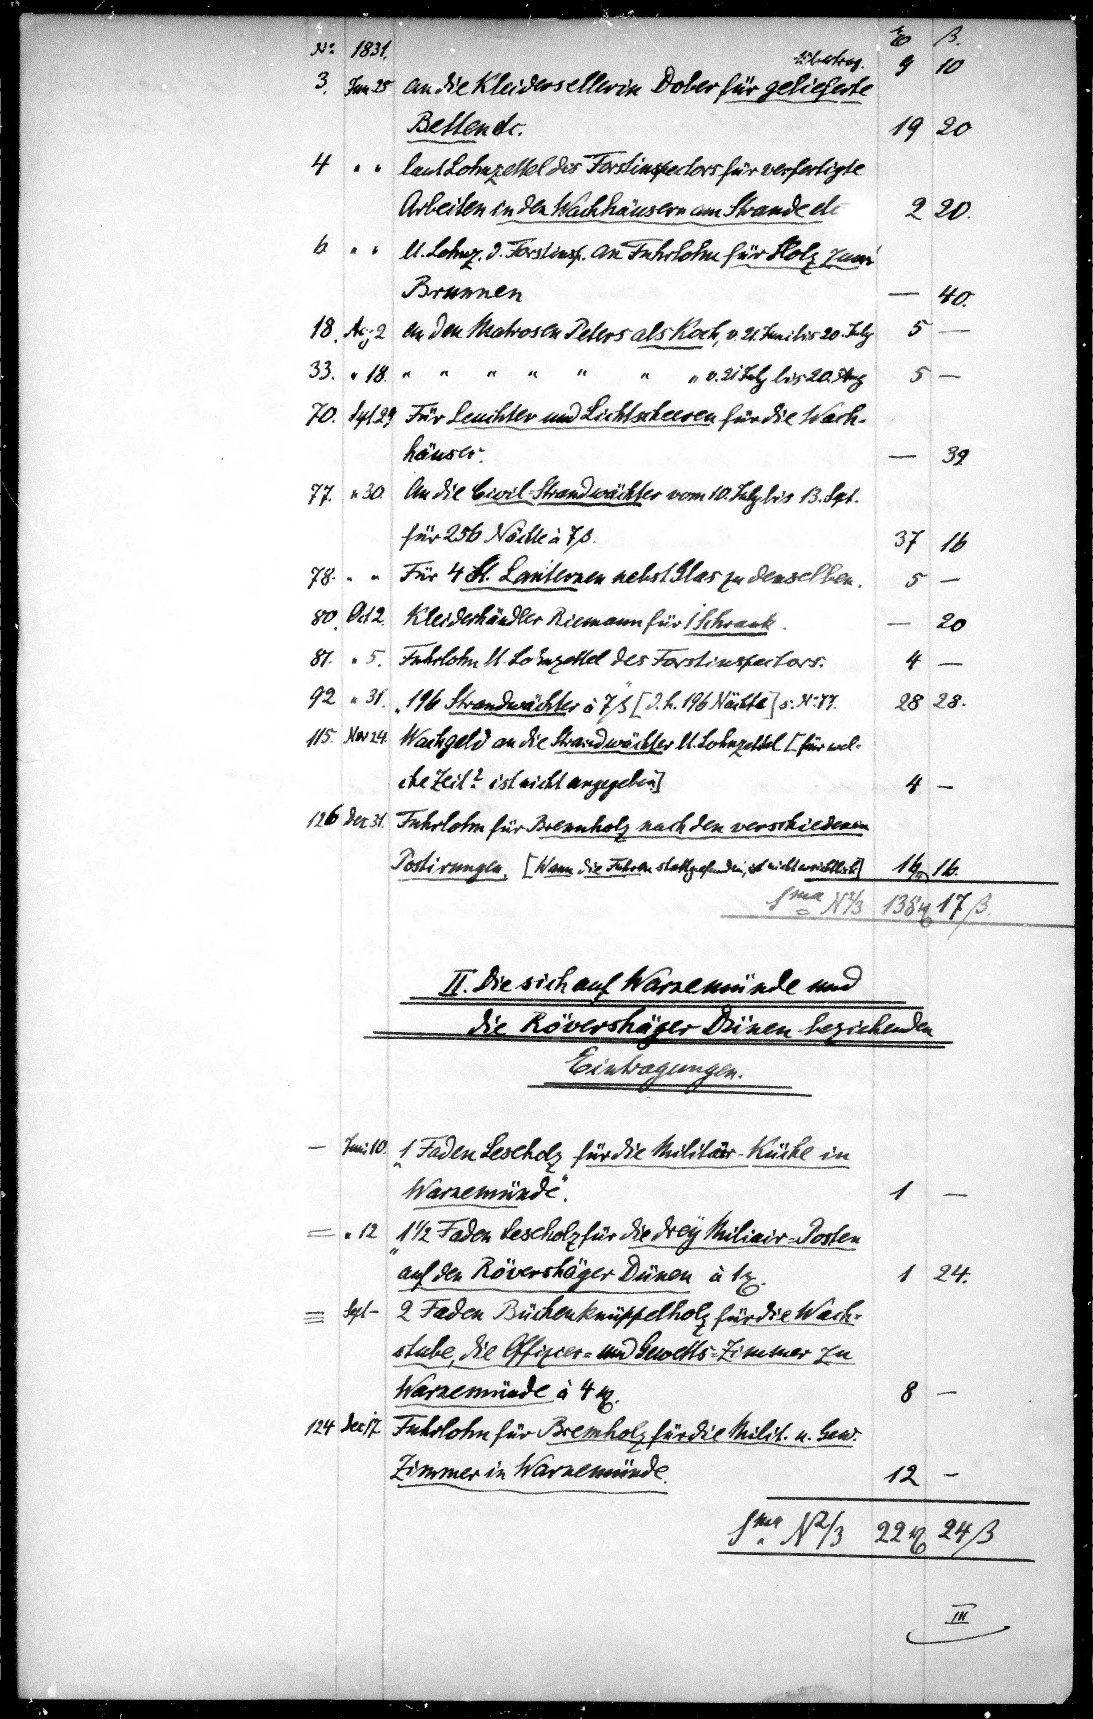 No 1831. ß.
Übertrag. 9 10
3. Jun 25 an die Kleidersellerin Dober für gelieferte
Betten etc. 19 20
4 " " laut Lohnzettel des Forstinspectors für verfertigte
Arbeiten in den Wachhäusern am Strande etc 2 20.
6 " " ll. Lohnz. d. Forstinsp. an Fuhrlohn für Holz zum
Brunnen — 40.
18. Aug 2 an den Matrosen Peters als Koch, v. 21. Juni bis 20. July 5 —
33. " 18. " " " " " " " v. 21 July bis 20. Aug 5 —
70. Spt 29 Für Leuchter und Lichtscheeren für die Wach-
häuser. — 32
77. " 30. An die Civil-Strandwächter vom 10. July bis 13. Spt.
für 256 Nächte à 7ß. 37 16
78. " " Für 4 St. Lanternen nebst Glas zu denselben. 5 —
80. Oct 2. Kleiderhändler Riemann für 1 Schrank. — 20
81. " 5. Fuhrlohn ll. Lohnzettel des Forstinspectors. 4 —
92 " 31. "196 Strandwächter à 7ß" [d.h. 196 Nächte] s. No 77. 28 28.
115. Nov 24. Wachgeld an die Strandwächter ll. Lohnzettel [für wel-
che Zeit? ist nicht angegeben] 4 —
126 Dez 31. Fuhrlohn für Brennholz nach den verschiedenen
Postirungen. [Wann die Fuhren stattgefunden, ist nicht ersichtlich] 16 16.
Sma N 1/3 138 17 ß.
II. Die sich auf Warnemünde und
die Rövershäger Dünen beziehenden
Eintragungen.
— Juni 10. "1 Faden Leseholz für die Militär-Küche in
Warnemünde". 1 —
= " 12 "1½ Faden Leseholz für die drey Miliair-Posten
auf den Rövershäger Dünen à 1. 1 24.
≡ Spt — 2 Faden Büchenknüppelholz für die Wach-
stube, die Offizier- und Gewetts-Zimmer zu
Warnemünde à 4. 8 —
124 Dec 17. Fuhrlohn für Brennholz für die Milit. u. Gew.
Zimmer in Warnemünde. 12 —
Sma N 2/3 22 24 ß
III